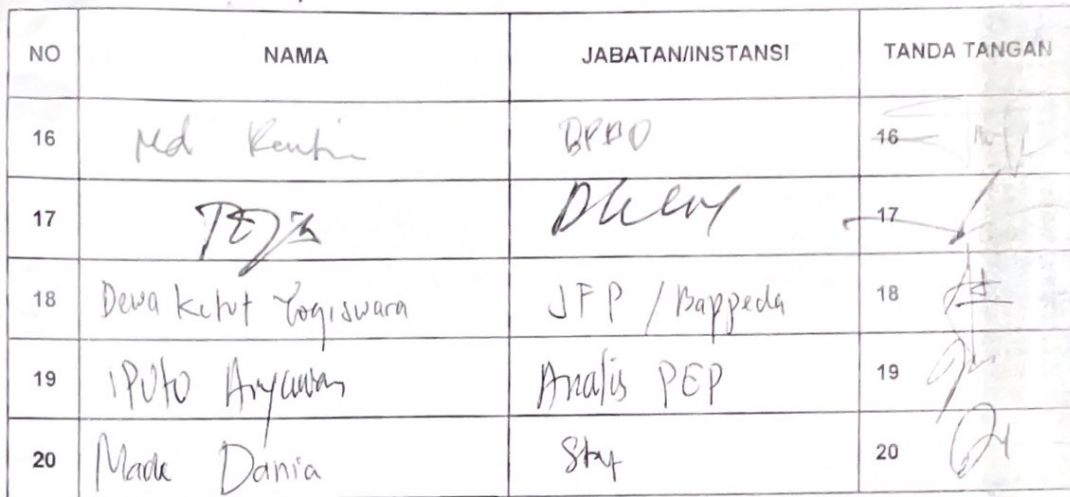 NO NAMA JABATAN/INSTANSI TANDA TANGAN
16 Md 16
17 17
18 Dewa Ketut Yogiswara JFP / Bappeda 18
19 IPUTO Aryawan Analis PEP 19
20 Made Dania Staf 20